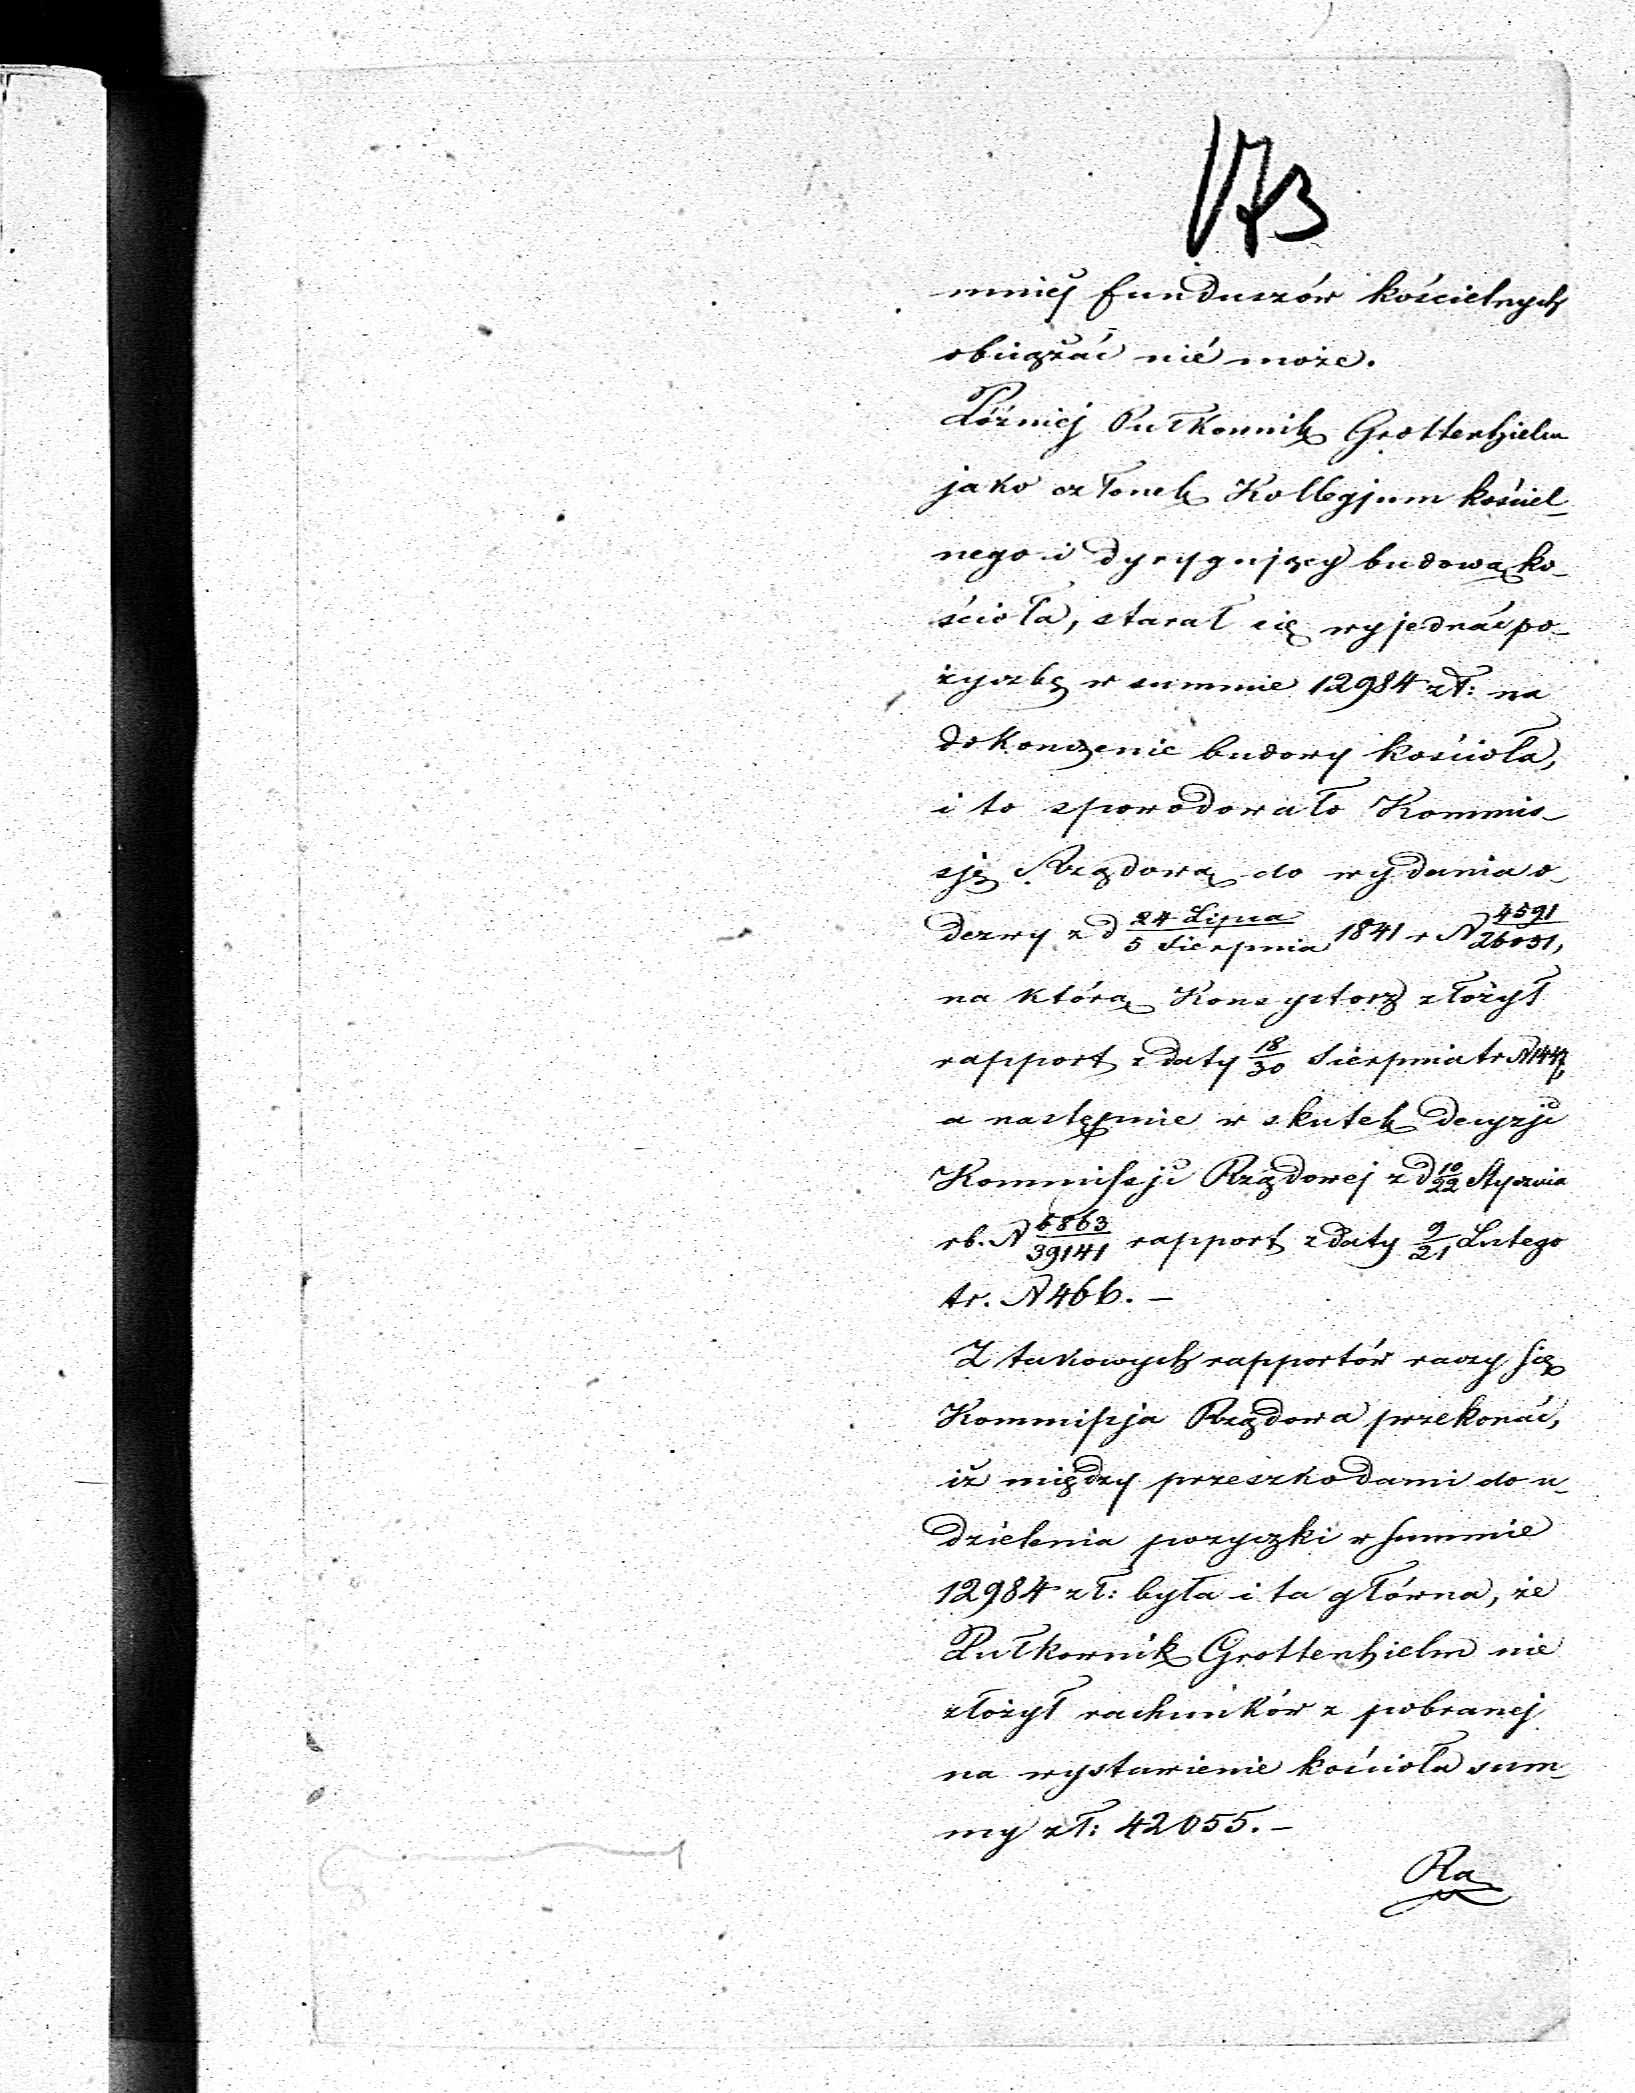 173
mniej funduszów kościelnych
obciążać nié może.
Późniéj Pułkownik Grottenhielm
jako członek Kollegjum kościel-
nego i dyrygujący budową ko-
ścioła, starał się wyjednać po-
życzkę w summie 12984 zł: na
dokończenie budowy kościoła,
i to spowodowało Kommis-
sję Rządową do wydania o-
dezwy z d 24 Lipca / 5 Sierpnia 1841 r N 4591 / 26051,
na którą Konsystorz złożył
rapport z daty 18/30 Sierpnia tr N 1447,
a następnie w skutek decyzji
Kommissji Rządowej z d 10/22 Stycznia
rb. N 6863 / 39141 rapport z daty 9/21 Lutego
tr. N 466. –
Z takowych rapportów raczy się
Kommissja Rządowa przekonać,
iż między przeszkodami do u-
dzielenia pożyczki w summie
12984 zł: była i ta główna, że
Pułkownik Grottenhielm nie
złożył rachunków z pobranej
na wystawienie kościoła sum-
my zł: 42055. –
Ra